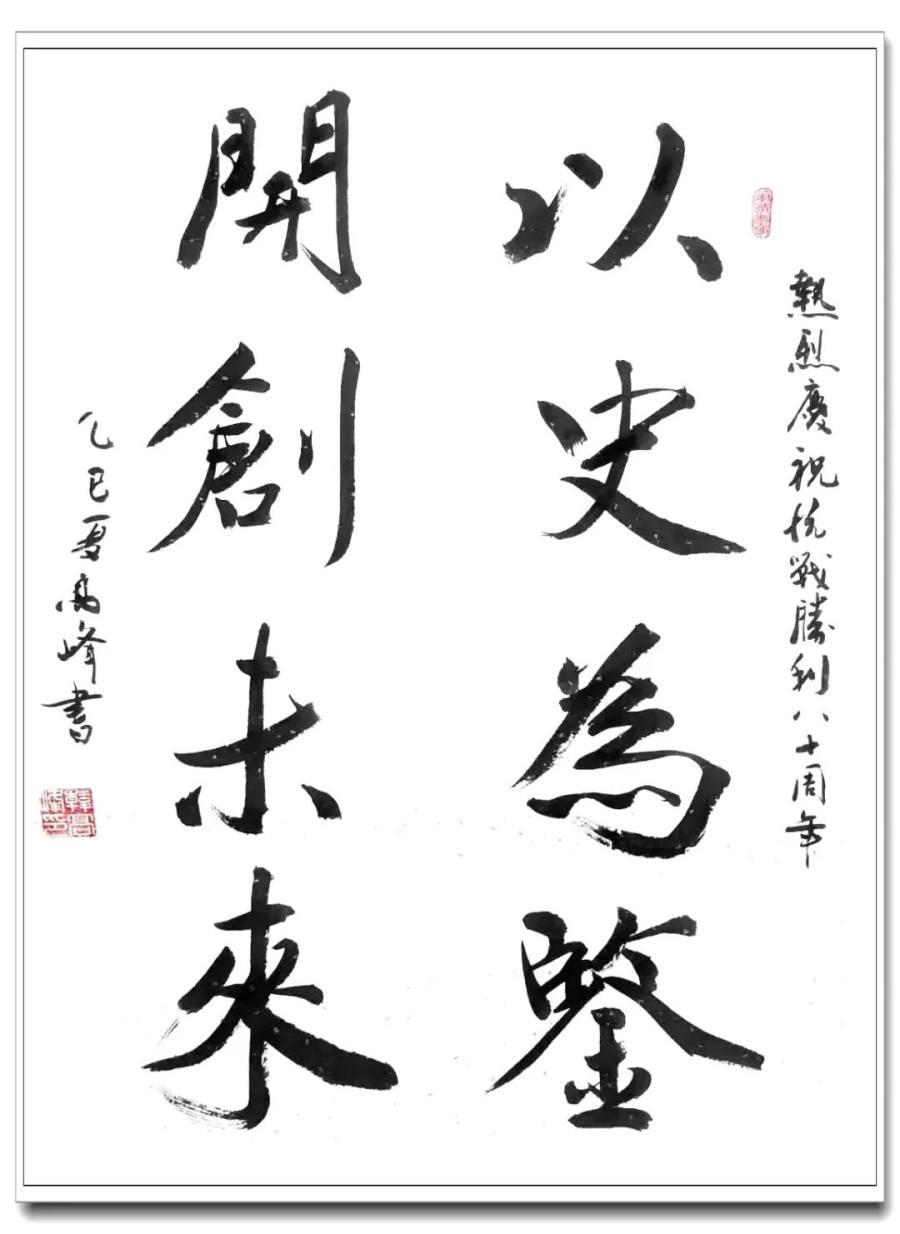 熱烈慶祝抗戰勝利八十周年
以史為鑒
開創未來
乙巳夏高峰書